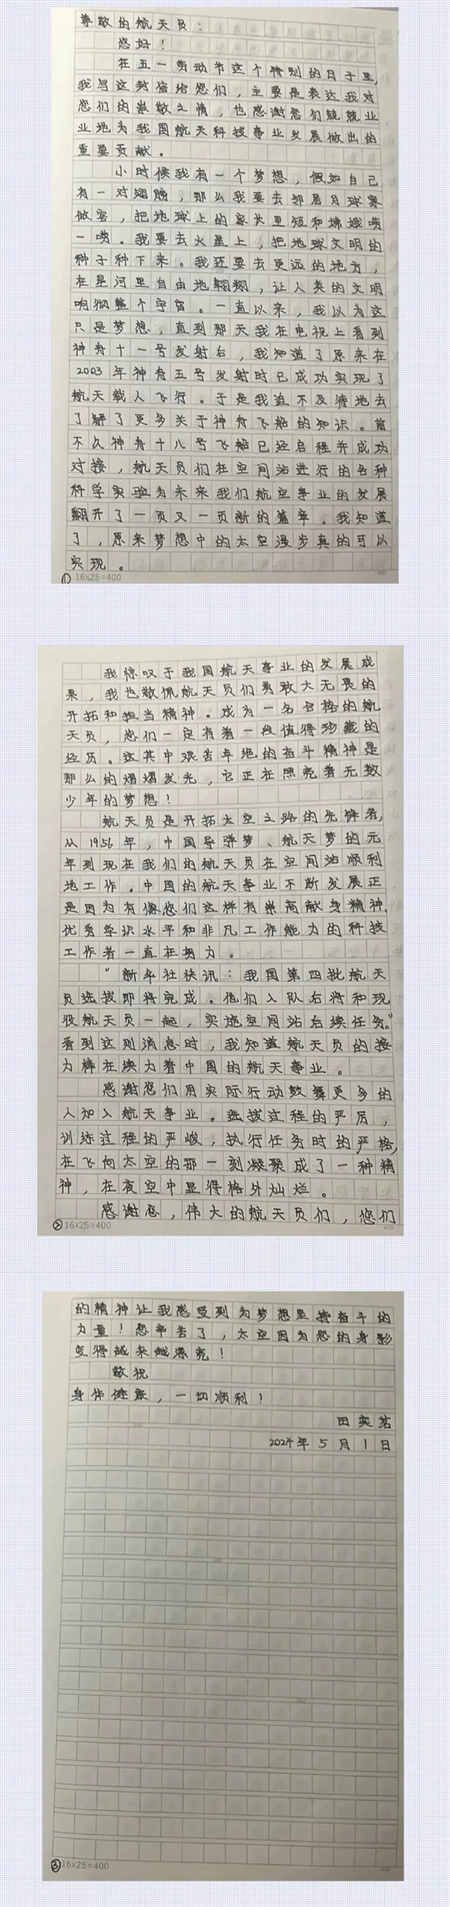 尊敬的航天员：
您好！
在五一劳动节这个特别的日子里，
我写这封信给您们，主要是表达我对
您们的崇敬之情，也感谢您们兢兢业
业地为我国航天科技事业发展做出的
重要贡献。
小时候我有一个梦想，假如自己
有一对翅膀，那么我要去邻居月球家
做客，把地球上的家长里短和嫦娥唠
一唠。我要去火星上，把地球文明的
种子种下来。我还要去更远的地方，
在星河里自由地翱翔，让人类的文明
响彻整个宇宙。一直以来，我以为这
只是梦想，直到那天我在电视上看到
神舟十一号发射后，我知道了原来在
2003年神舟五号发射时已成功实现了
航天载人飞行。于是我迫不及待地去
了解了更多关于神舟飞船的知识。前
不久神舟十八号飞船已经启程并成功
对接，航天员们在空间站进行的各种
科学实验为未来我们航空事业的发展
翻开了一页又一页新的篇章。我知道
了，原来梦想中的太空漫步真的可以
实现。
① 16x25=400
我惊叹于我国航天事业的发展成
果，我也敬佩航天员们勇敢大无畏的
开拓和担当精神。成为一名合格的航
天员，您们一定有着一段值得珍藏的
经历。这其中艰苦卓绝的奋斗精神是
那么的熠熠发光，它正在照亮着无数
少年的梦想！
航天员是开拓太空之路的先锋者，
从1956年，中国导弹梦、航天梦的元
年到现在我们的航天员在空间站顺利
地工作。中国的航天事业不断发展正
是因为有像您们这样有崇高献身精神、
优秀学识水平和非凡工作能力的科技
工作者一直在努力。
“新华社快讯：我国第四批航天
员选拔即将完成。他们入队后将和现
役航天员一起，实施空间站后续任务。”
看到这则消息时，我知道航天员的接
力棒在续力着中国的航天事业。
感谢您们用实际行动鼓舞更多的
人加入航天事业。选拔过程的严厉，
训练过程的严峻，执行任务时的严格，
在飞向太空的那一刻凝聚成了一种精
神，在夜空中显得格外灿烂。
感谢您，伟大的航天员们，您们
② 16x25=400
的精神让我感受到为梦想坚持奋斗的
力量！您辛苦了，太空因为您的身影
变得越来越漂亮！
敬祝
身体健康，一切顺利！
田奕茗
2024年5月1日
③ 16x25=400